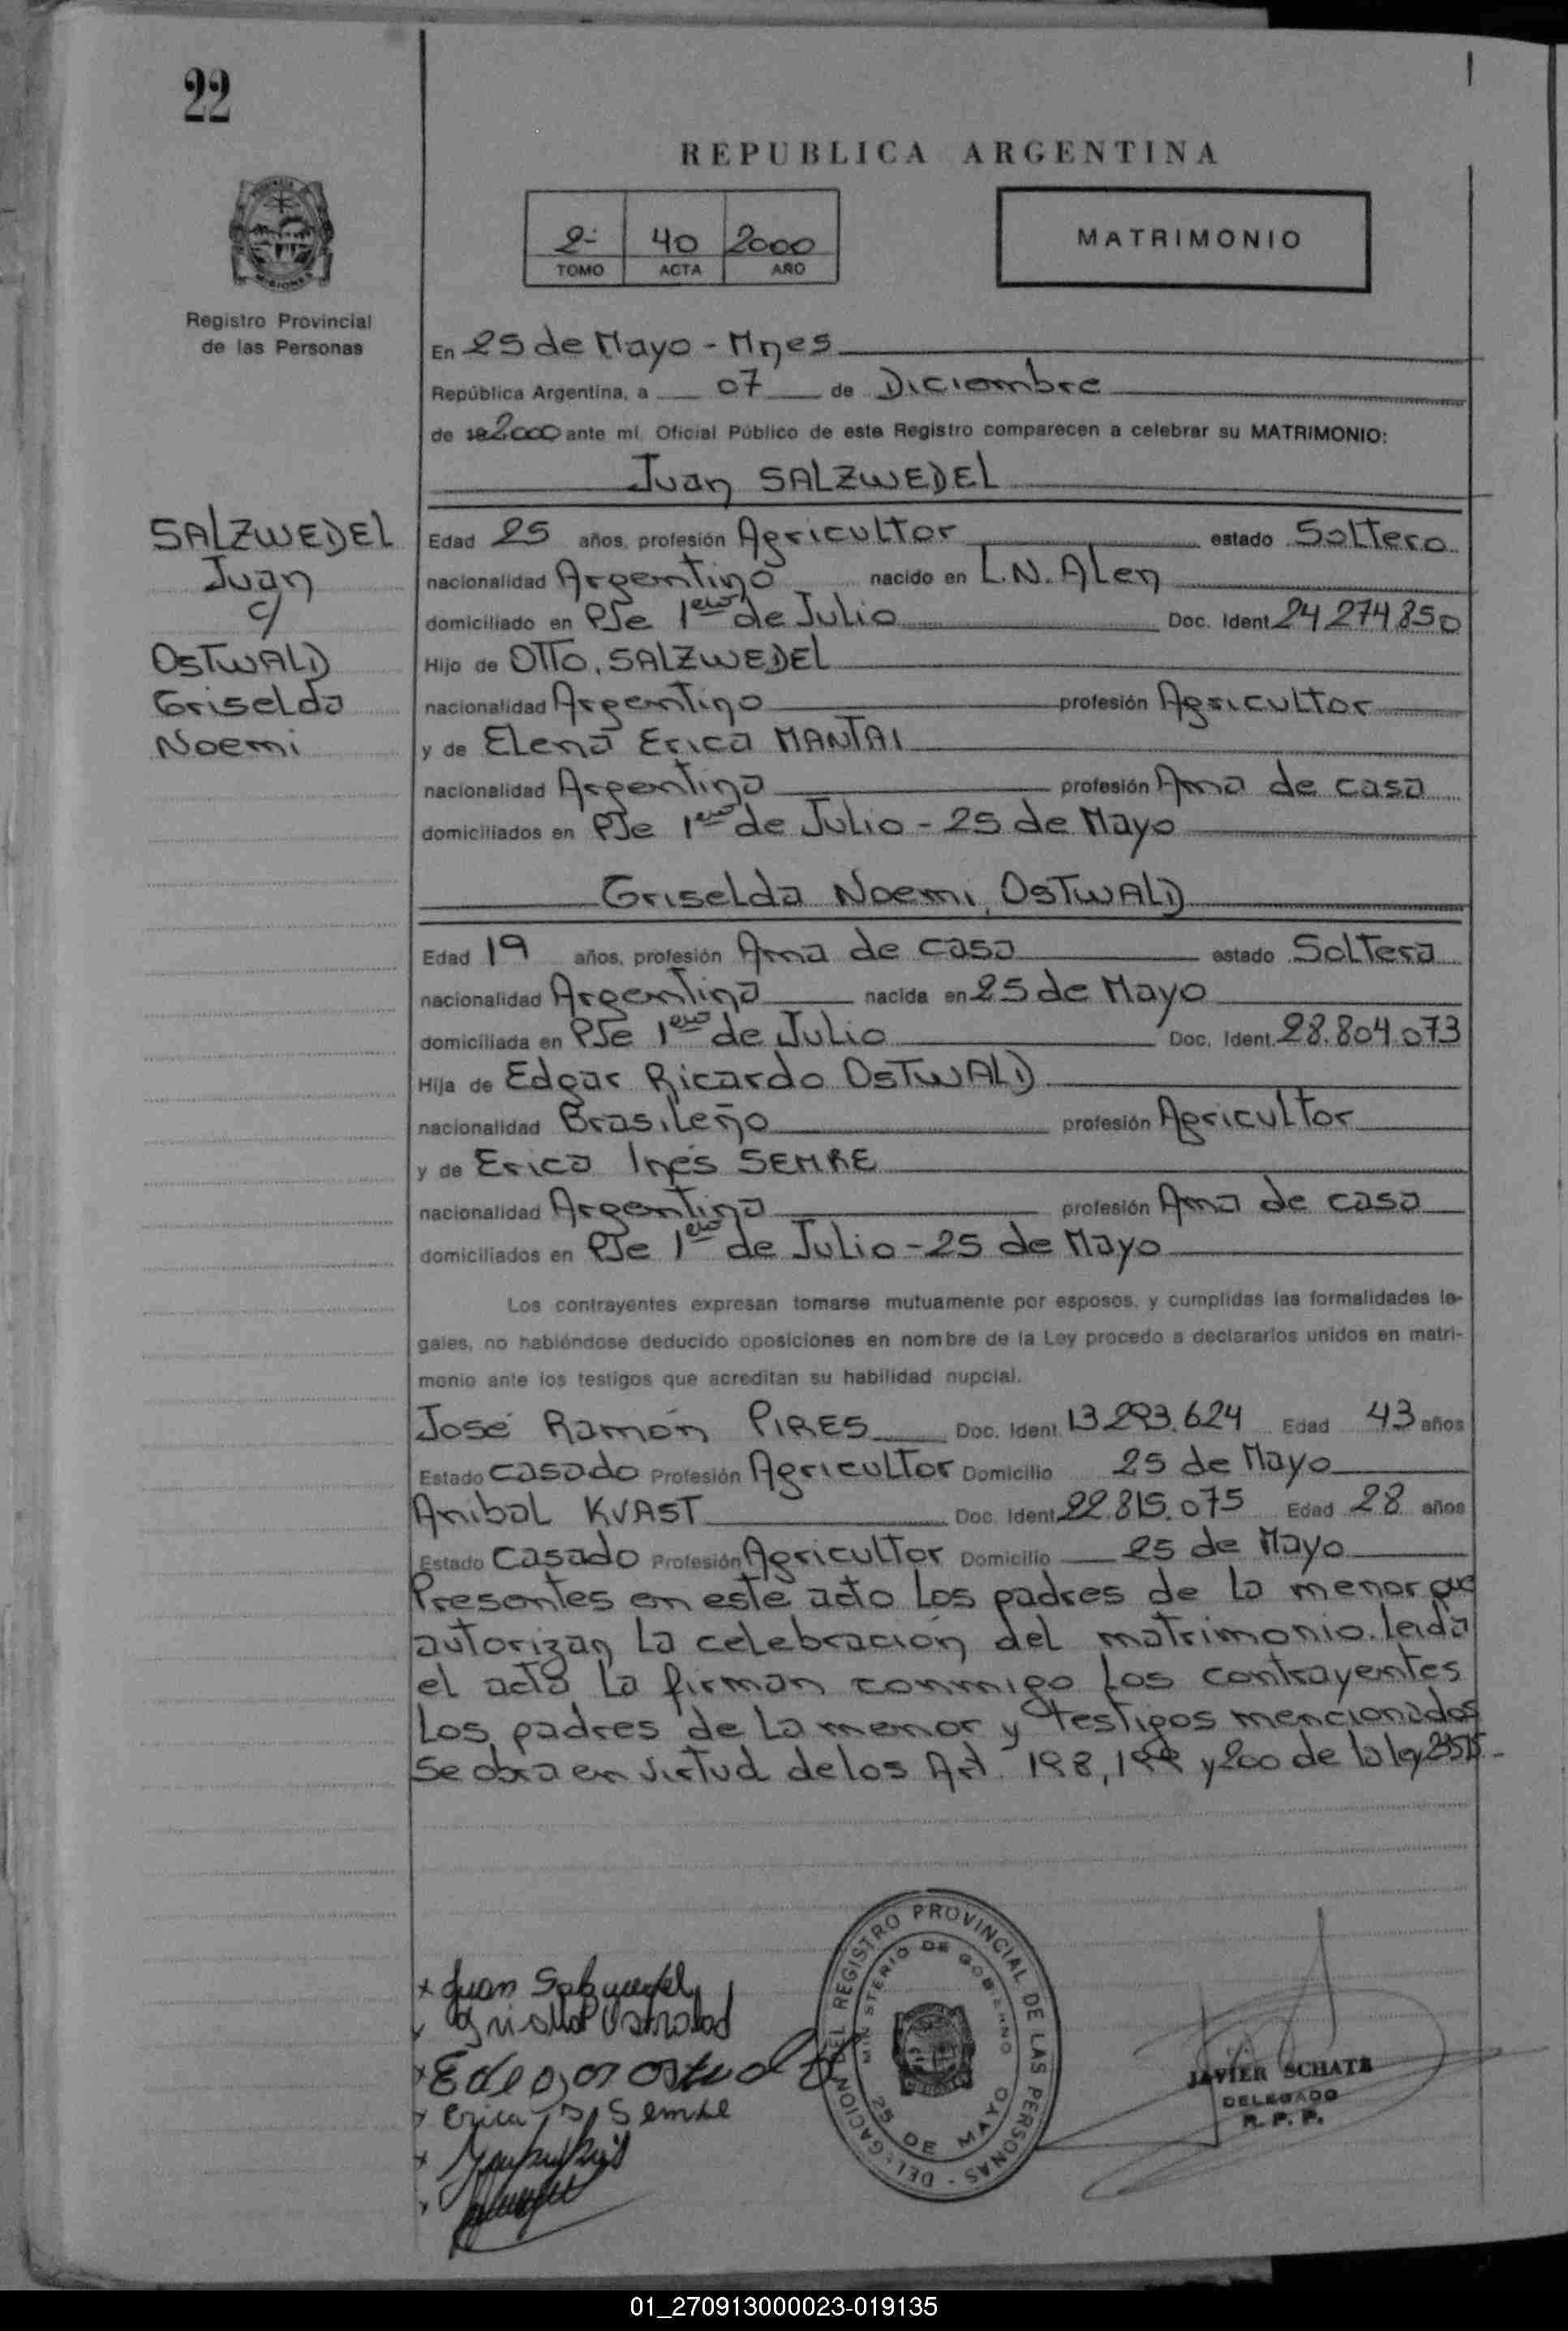 22
REPUBLICA ARGENTINA
2- 40 2000
TOMO ACTA AÑO
MATRIMONIO
Registro Provincial
de las Personas
En 25 de Mayo - Mnes
República Argentina, a 07 de Diciembre
de 2000 ante mí, Oficial Público de este Registro comparecen a celebrar su MATRIMONIO:
Juan SALZWEDEL
SALZWEDEL
Juan
c/
OSTWALD
Griselda
Noemi
Edad 25 años, profesión Agricultor estado Soltero
nacionalidad Argentino nacido en L.N. Alen
domiciliado en PJe 1ero de Julio Doc. Ident. 24 274.850
Hijo de OTTO, SALZWEDEL
nacionalidad Argentino profesión Agricultor
y de Elena Erica MANTAI
nacionalidad Argentina profesión Ama de casa
domiciliados en PJe 1ero de Julio - 25 de Mayo
Griselda Noemi, OSTWALD
Edad 19 años, profesión Ama de casa estado Soltera
nacionalidad Argentina nacida en 25 de Mayo
domiciliada en PJe 1ero de Julio Doc. Ident. 28.804.073
Hija de Edgar Ricardo OSTWALD
nacionalidad Brasileño profesión Agricultor
y de Erica Inés SEMKE
nacionalidad Argentina profesión Ama de casa
domiciliados en PJe 1ero de Julio - 25 de Mayo
Los contrayentes expresan tomarse mutuamente por esposos, y cumplidas las formalidades le-
gales, no habiéndose deducido oposiciones en nombre de la Ley procedo a declararlos unidos en matri-
monio ante los testigos que acreditan su habilidad nupcial.
José Ramón PIRES Doc. Ident. 13 293.624 Edad 43 años
Estado Casado Profesión Agricultor Domicilio 25 de Mayo
Anibal KVAST Doc. Ident. 22.815.075 Edad 28 años
Estado Casado Profesión Agricultor Domicilio 25 de Mayo
Presentes en este acto los padres de la menor que
autorizan la celebración del matrimonio. leida
el acta la firman conmigo los contrayentes
los padres de la menor y testigos mencionados
Se obra en virtud de los Art. 198, 199 y 200 de la ley 23515.-
x Juan Salzwedel
Edegar ostwald
x Erica I. Semke
DELEGACION DEL REGISTRO PROVINCIAL DE LAS PERSONAS -
MINISTERIO DE GOBIERNO
25 DE MAYO
JAVIER SCHATZ
DELEGADO
R. P. P.
01_270913000023-019135